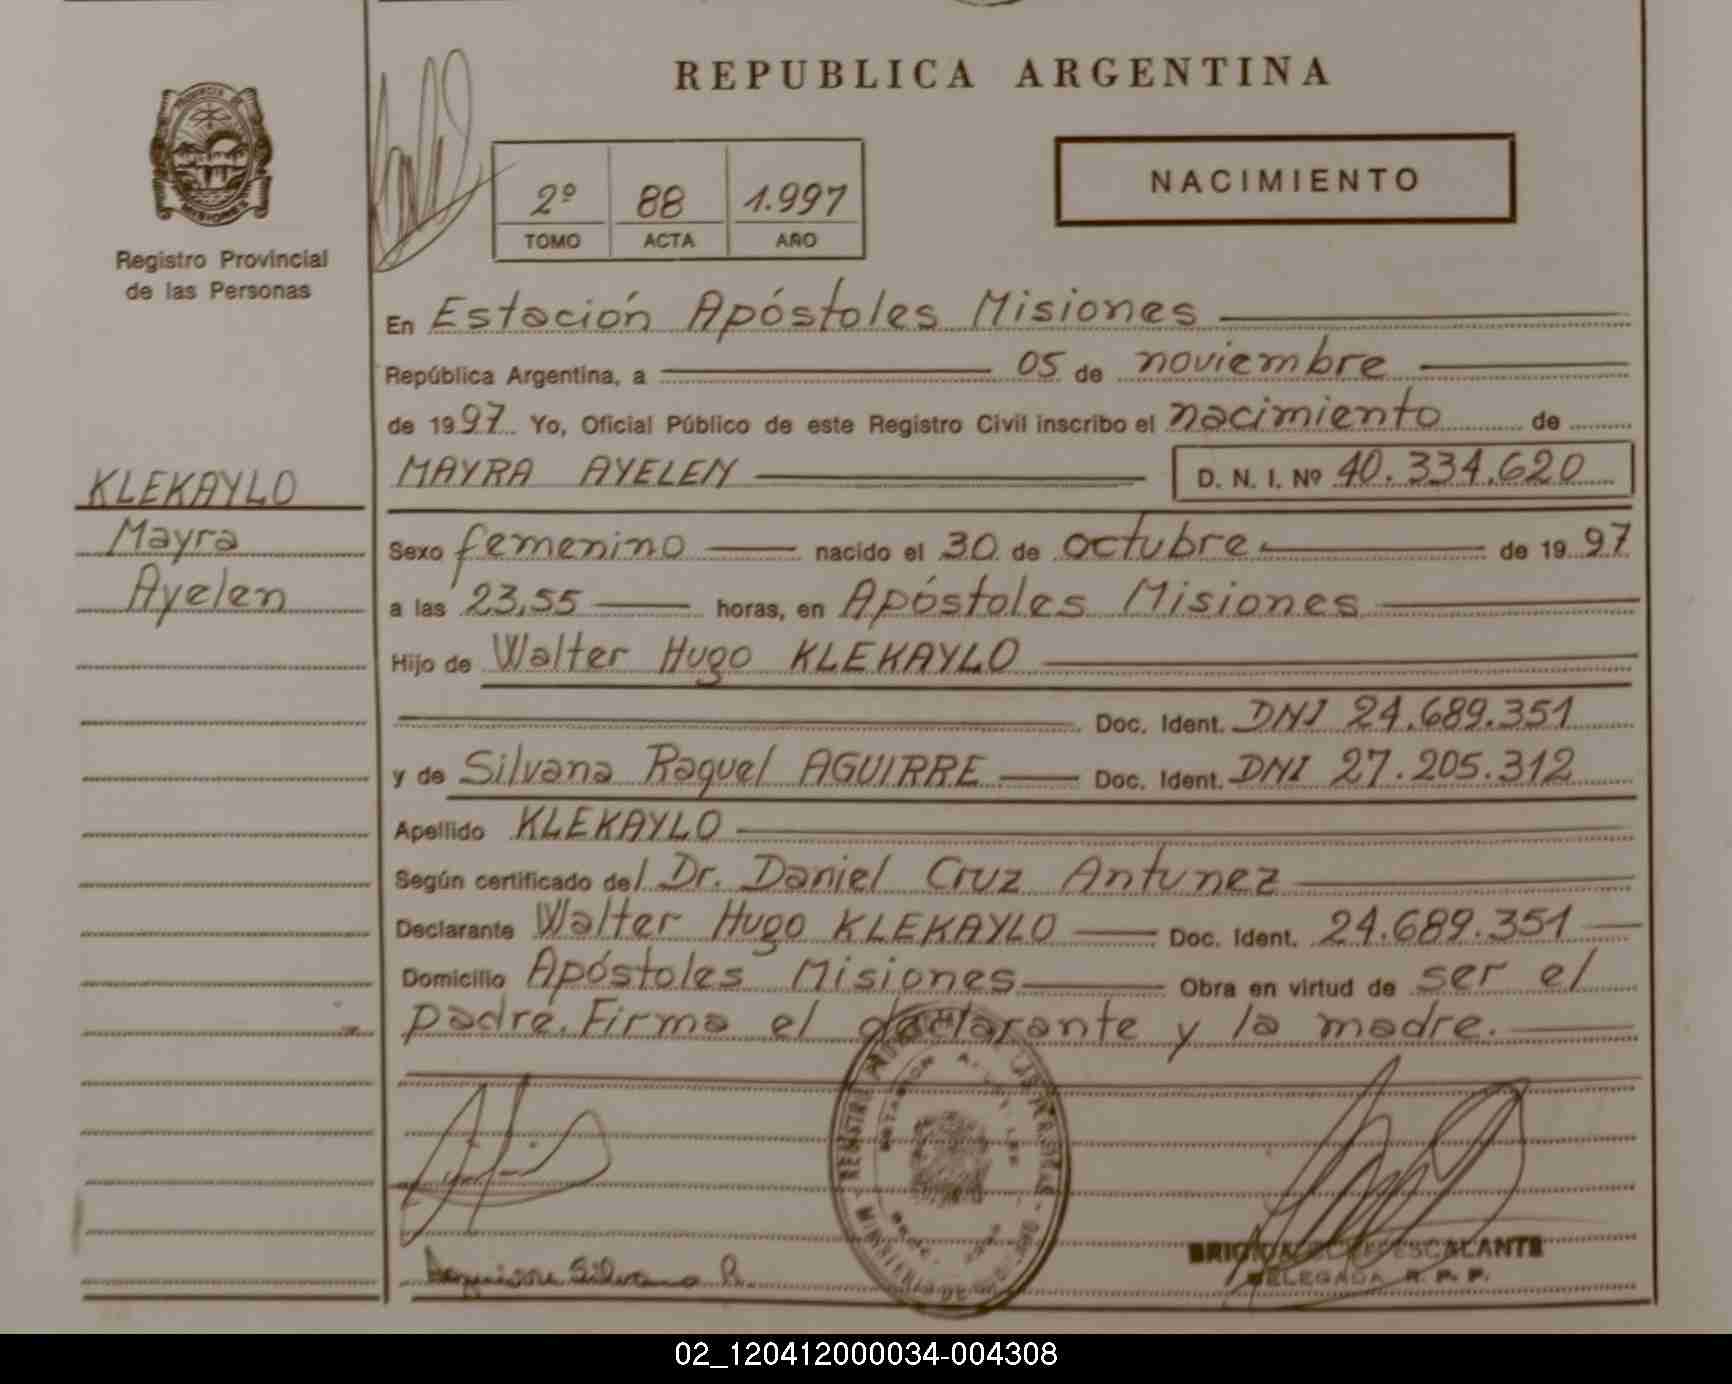 REPUBLICA ARGENTINA
PROVINCIA DE
MISIONES
Registro Provincial
de las Personas
2º 88 1.997
TOMO ACTA AÑO
NACIMIENTO
En Estación Apóstoles Misiones
República Argentina, a 05 de noviembre
de 1997 Yo, Oficial Público de este Registro Civil inscribo el nacimiento de
MAYRA AYELEN D. N. I. Nº 40.334.620
KLEKAYLO
Mayra
Ayelen
Sexo femenino nacido el 30 de octubre de 1997
a las 23,55 horas, en Apóstoles Misiones
Hijo de Walter Hugo KLEKAYLO
Doc. Ident. DNI 24.689.351
y de Silvana Raquel AGUIRRE Doc. Ident. DNI 27.205.312
Apellido KLEKAYLO
Según certificado del Dr. Daniel Cruz Antunez
Declarante Walter Hugo KLEKAYLO Doc. Ident. 24.689.351
Domicilio Apóstoles Misiones Obra en virtud de ser el
padre. Firma el declarante y la madre.
Silvana R.
ESCALANTE
DELEGADA R. P. P.
02_120412000034-004308